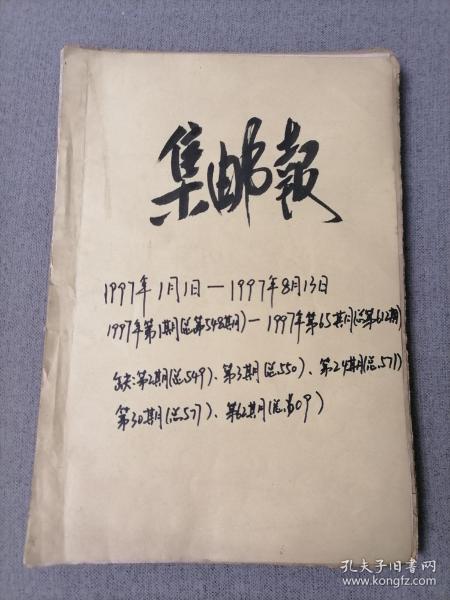 集邮报
1997年1月1日—1997年8月13日
1997年第1期(总第548期)—1997年第65期(总第612期)
缺:第2期(总549)、第3期(总550)、第24期(总571)
第30期(总577)、第62期(总609)
孔夫子旧书网
www.kongfz.com